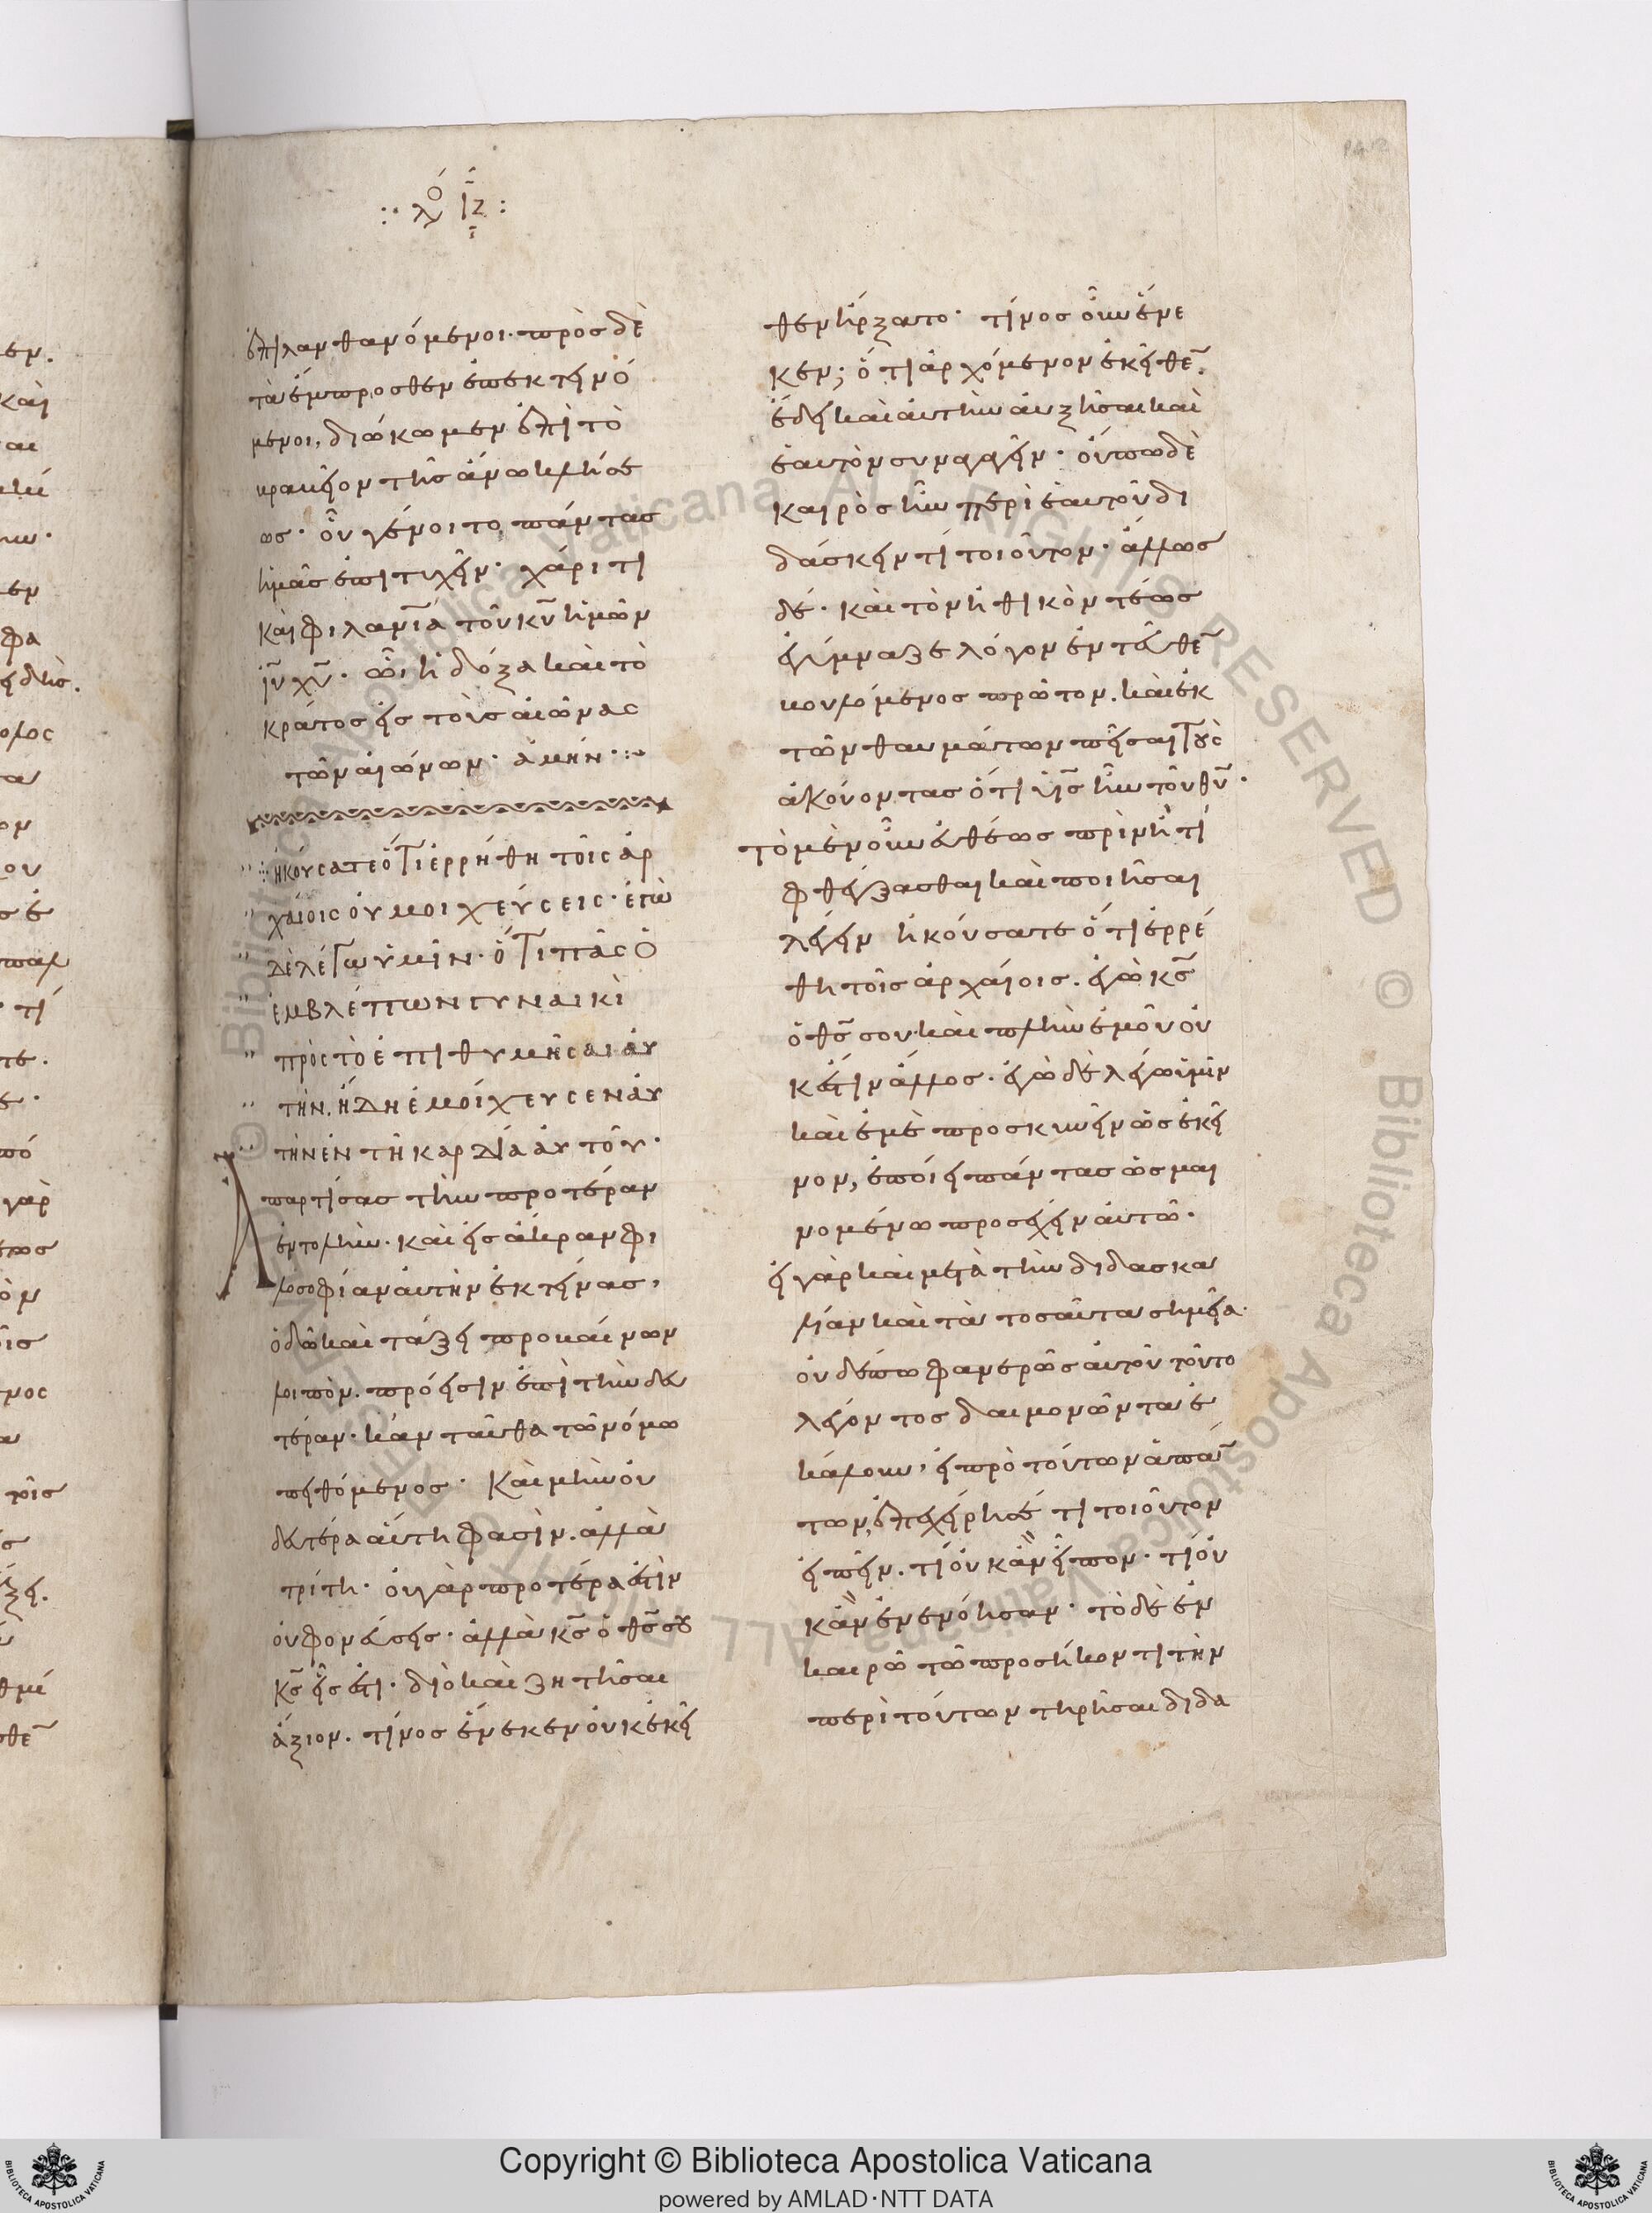 λό ιζ
ἐπιλανθανόμενοι· πρὸς δὲ
τὰ ἔμπροσθεν ἐπεκτεινό
μενοι, διώκωμεν ἐπὶ τὸ
βραβεῖον τῆς ἄνω κλήσε
ως· οὗ γένοιτο πάντας
ἡμᾶς ἐπιτυχεῖν· χάριτι
καὶ φιλανίᾳ τοῦ κυ ἡμῶν
ιυ χυ· ᾧ ἡ δόξα καὶ τὸ
κράτος εἰς τοὺς αἰῶνας
τῶν αἰώνων· ἀμήν·
ἠκούσατε ὅτι ἐρρήθη τοῖς ἀρ
χαίοις οὐ μοιχεύσεις· ἐγὼ
δὲ λέγω ὑμῖν· ὅτι πᾶς ὁ
ἐμβλέπων γυναικὶ
πρὸς τὸ ἐπιθυμῆσαι αὐ
τὴν, ἤδη ἐμοίχευσεν αὐ
τὴν ἐν τῆ καρδία αὐτοῦ·
Ἀπαρτίσας τὴν προτέραν
ἐντολὴν· καὶ εἰς ἄκραν φι
λοσοφίαν αὐτὴν ἐκτείνας,
ὁδῶ καὶ τάξει προβαίνων
λοιπὸν, πρόεισιν ἐπὶ τὴν δευ
τέραν· κἀνταῦθα τῶ νόμω
πειθόμενος· Καὶ μὴν οὐ
δευτέρα αὕτη φασὶν, ἀλλὰ
τρίτη· οὐ γὰρ προτέρα ἐστὶν
οὐ φονεύσεις· ἀλλὰ κς ὁ θς σου
κς εἷς ἐστι· διὸ καὶ ζητῆσαι
ἄξιον, τίνος ἕνεκεν οὐκ ἐκεῖ
θεν ἤρξατο· τίνος οὖν ἕνε
κεν; ὅτι ἀρχόμενον ἐκεῖθεν,
ἔδει καὶ αὐτὴν αὐξῆσαι καὶ
ἑαυτὸν συναγαγεῖν· οὔπω δὲ
καιρὸς ἦν περὶ ἑαυτοῦ δι
δάσκειν τί τοιοῦτον· ἄλλως
δὲ· καὶ τὸν ἠθικὸν τέως
ἐγύμναζε λόγον ἐντεῦθεν
βουλόμενος πρῶτον, καὶ ἐκ
τῶν θαυμάτων πεῖσαι τοὺς
ἀκούοντας ὅτι υἱς ἦν τοῦ θυ·
τὸ μὲν οὖν εὐθέως πρὶν ἤ τι
φθέγξασθαι καὶ ποιῆσαι
λέγειν ἠκούσατε ὅτι ἐρρέ
θη τοῖς ἀρχαίοις, ἐγὼ κς
ὁ θς σου καὶ πλὴν ἐμοῦ οὐ
κ ἔστιν ἄλλος· ἐγὼ δὲ λέγω ὑμῖν
καὶ ἐμὲ προσκυνεῖν ὡς ἐκεῖ
νον, ἐποίει πάντας ὡς μαι
νομένω προσέχειν αὐτῶ·
εἰ γὰρ καὶ μετὰ τὴν διδασκα
λίαν καὶ τὰ τοσαῦτα σημεῖα·
οὐδέπω φανερῶς αὐτοῦ τοῦτο
λέγοντος δαιμονῶντα ἐ
κάλουν, εἰ πρὸ τούτων ἁπάν
των, ἐπεχείρησέ τι τοιοῦτον
εἰπεῖν, τί οὐκ ἂν εἶπον· τί οὐ
κ ἂν ἐνενόησαν· τὸ δὲ ἐν
καιρῶ τῶ προσήκοντι τὴν
περὶ τούτων τηρῆσαι διδα
Copyright © Biblioteca Apostolica Vaticana
powered by AMLAD·NTT DATA